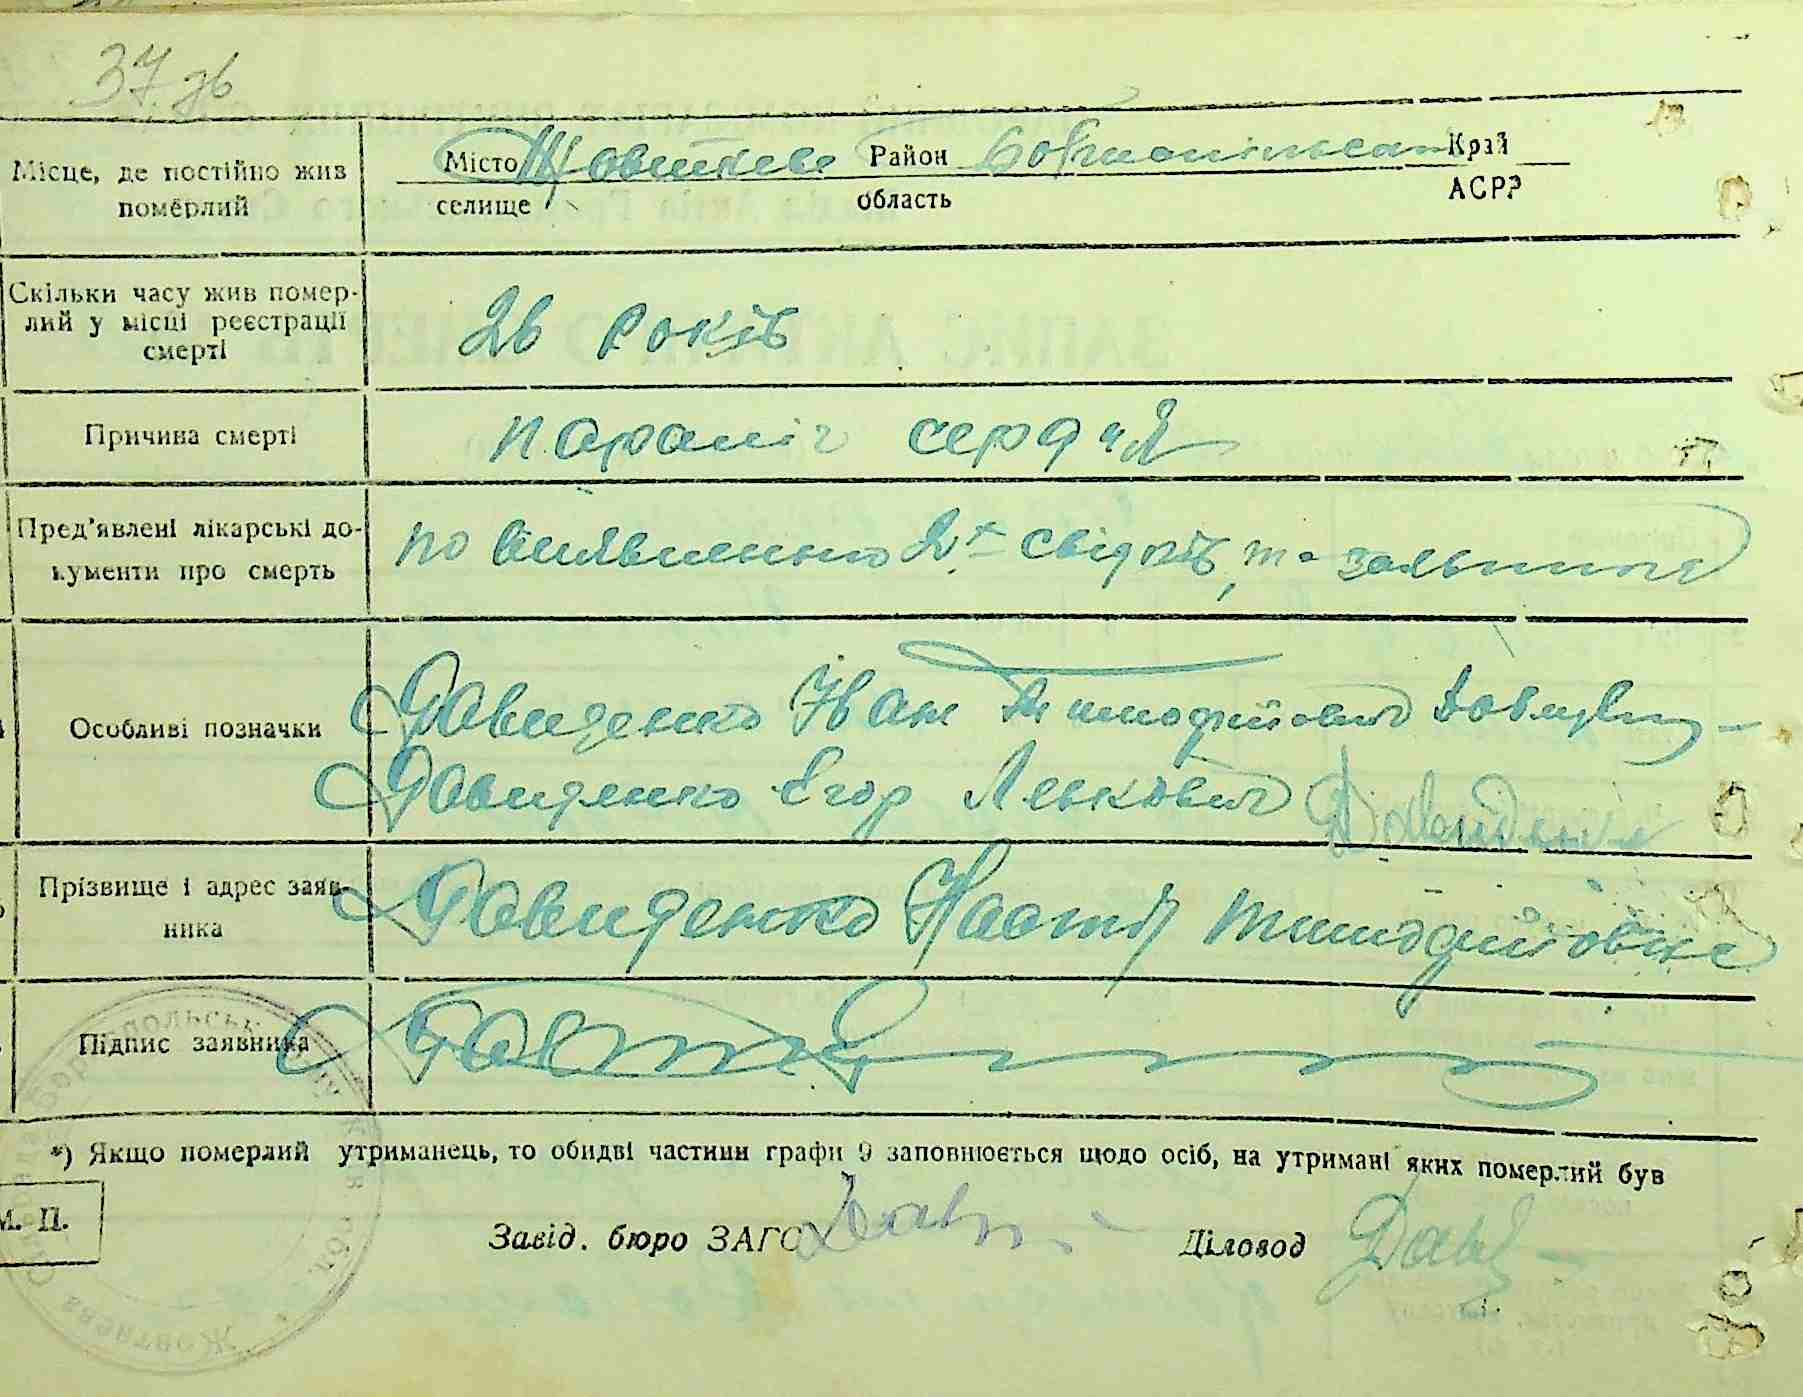 37 зв
Місце, де постійно жив
померлий
Місто Жовтневе Район Бориспільськ Край
селище область АСРР
Скільки часу жив помер-
лий у місці реєстрації
смерті
26 років
Причина смерті
параліч серця
Пред'явлені лікарські до-
кументи про смерть
по виявленню 2х свідків, та заявника
Особливі позначки
Давиденко Іван Тимофійович
Давиденко Єгор Ленкович
Прізвище і адрес заяв-
ника
Давиденко Настя Тимофійовна
Підпис заявника
*) Якщо померлий утриманець, то обидві частини графи 9 заповнюється щодо осіб, на утримані яких померлий був
М. П.
Завід. бюро ЗАГС
Діловод